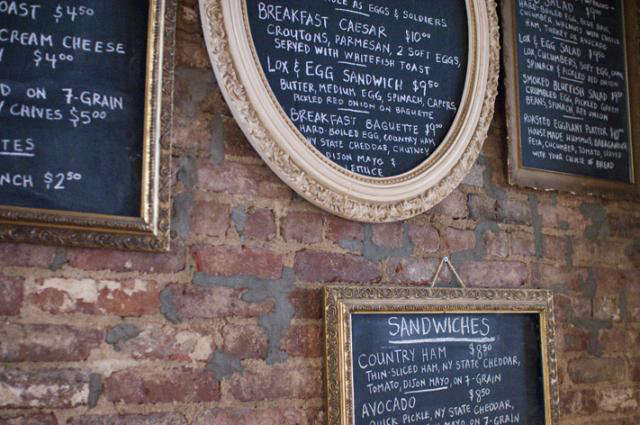 OAST $4.50
CREAM CHEESE
$4.00
D ON 7-GRAIN
CHIVES $5.00
TES
NCH $2.50
AS EGGS & SOLDIERS
BREAKFAST CAESAR $10.00
CROUTONS, PARMESAN, 2 SOFT EGGS,
SERVED WITH WHITEFISH TOAST
LOX & EGG SANDWICH $9.50
BUTTER, MEDIUM EGG, SPINACH, CAPERS,
PICKLED RED ONION ON BAGUETTE
BREAKFAST BAGUETTE $9.00
HARD-BOILED EGG, COUNTRY HAM
NY STATE CHEDDAR, CHUTNEY
DIJON MAYO &
LETTUCE
SALAD
LOX & EGG SALAD
LOX, CUCUMBERS, SOFT EGG,
SPINACH & PICKLED RED
SMOKED BLUEFISH SALAD
CRUMBLED EGG, PICKLED GREEN
BEANS, SPINACH, RED ONION
ROASTED EGGPLANT PLATTER
HOUSEMADE HUMMUS, BABAGANOUSH
FETA, CUCUMBER, TOMATO, SERVED
WITH YOUR CHOICE OF BREAD
SANDWICHES
COUNTRY HAM $8.50
THIN-SLICED HAM, NY STATE CHEDDAR,
TOMATO, DIJON MAYO, ON 7-GRAIN
AVOCADO $8.50
QUICK PICKLE, NY STATE CHEDDAR,
MAYO ON 7-GRAIN